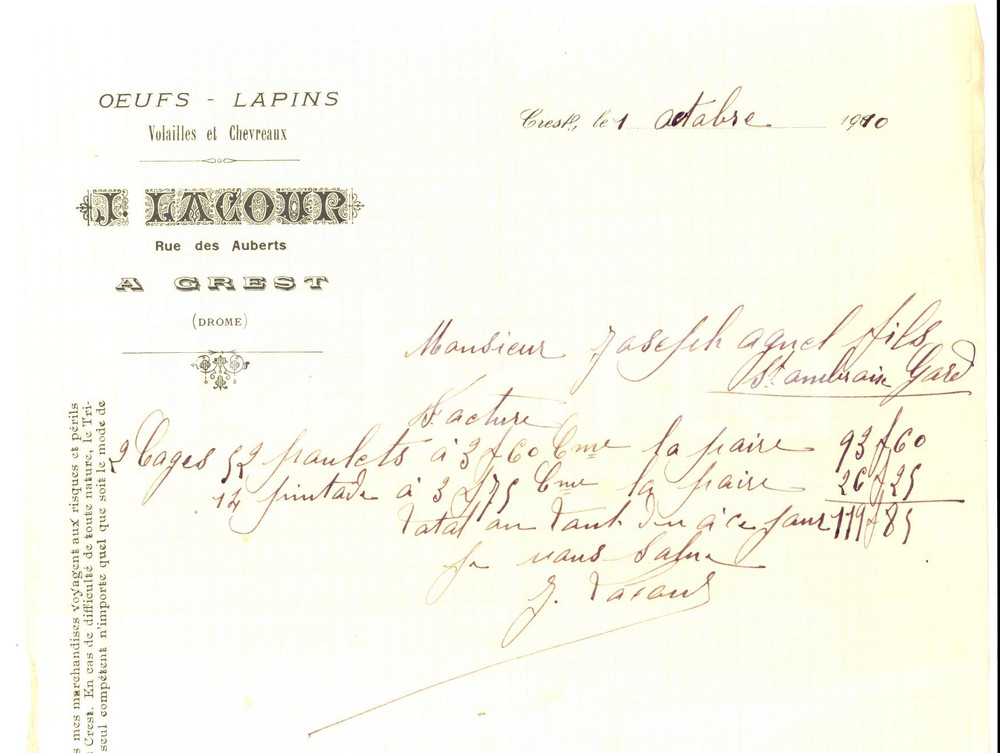 OEUFS - LAPINS
Volailles et Chevreaux
J. LACOUR
Rue des Auberts
A CREST
(DROME)
Crest, le 1 octobre 1910
Monsieur Joseph agnel fils
St ambroise Gard
Facture
2 Cages 52 poulets à 3f60 Cme la paire 93f60
14 pintade à 3f75 Cme la paire 26f25
Total au tout du à ce jour 119f85
Je vous salue
J. Lacour
s mes marchandises voyagent aux risques et périls
Crest. En cas de difficulté de toute nature, le Tri-
seul compétent n'importe quel que soit le mode de